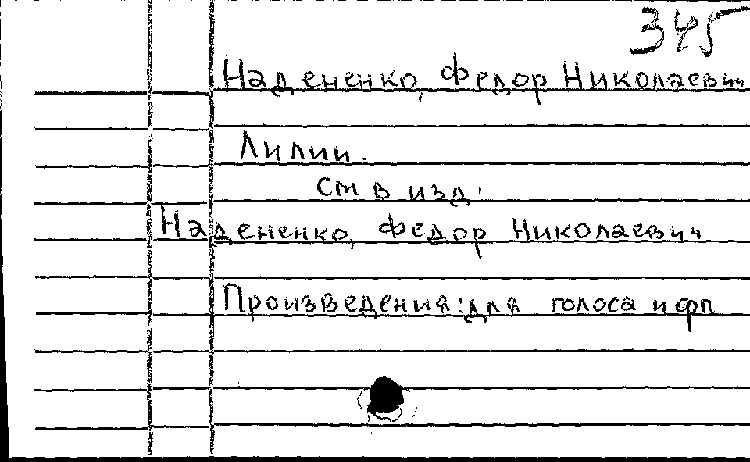 345
Надененко, Федор Николаевич
Лилии.
см в изд.
Надененко, Федор Николаевич
Произведения: для голоса и фп